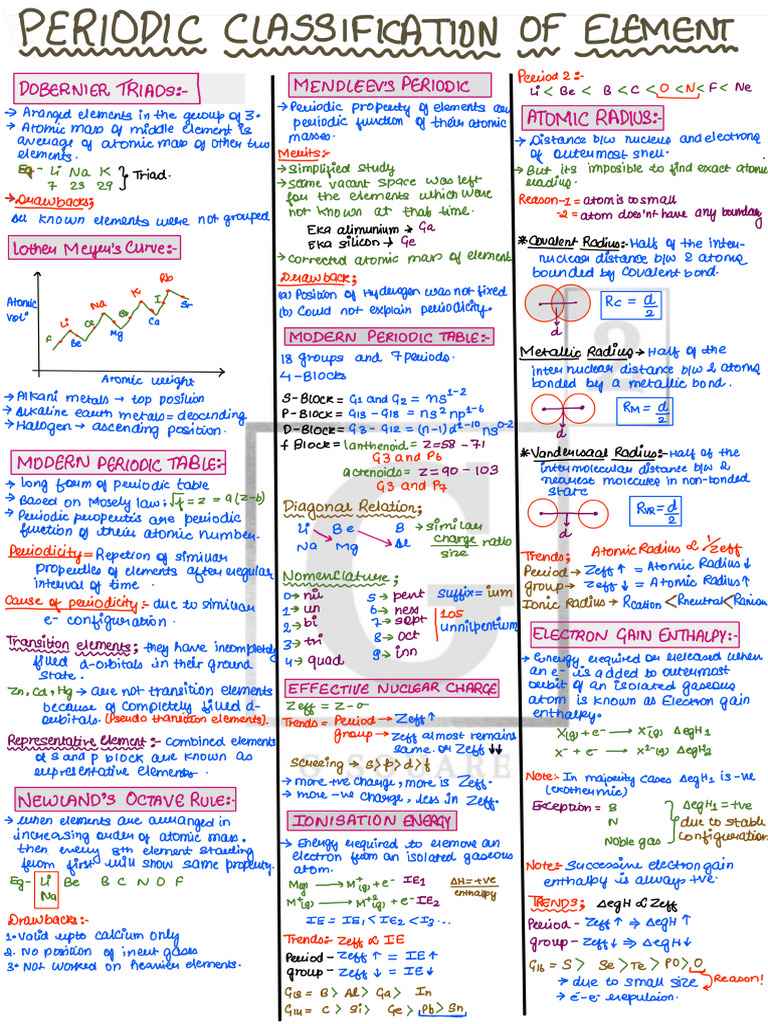 PERIODIC CLASSIFICATION OF ELEMENT
DOBERNIER TRIADS:-
→ Aranged elements in the group of 3.
→ Atomic mass of middle element is
average of atomic mass of other two
elements.
Eg- Li Na K } Triad.
7 23 29
→ Drawbacks;
All known elements were not grouped
Lother Meyer's Curve:-
Atomic
vol°
F Li Be Na Mg K Ca I Rb Sr
Atomic weight
→ Alkani metals → top position
→ Alkaline earth metals = descending
→ Halogen → ascending position.
MODERN PERIODIC TABLE:-
→ Long form of periodic table
→ Based on Mosely law: √f = z = a(z-b)
→ Periodic properitis are periodic
function of their atomic number.
Periodicity = Repetion of similiar
properties of elements after regular
interval of time.
Cause of periodicity:- due to similiar
e- configuration.
Transition elements; they have incompletely
filled d-orbitals in their ground
state.
Zn, Cd, Hg → are not transition elements
because of completely filled d-
orbitals (Pseudo transition elements).
Representative Element:- combined elements
of s and p block are known as
representative elements.
NEWLAND'S OCTAVE RULE:-
→ when elements are arranged in
increasing order of atomic mass,
then every 8th element starting
from first will show same property.
Eg- Li Be B C N O F
Na
Drawbacks:-
1• Valid upto calcium only
2• No position of inert gases
3• Not worked on heavier elements.
MENDLEEV'S PERIODIC
→ Periodic property of elements are
periodic function of their atomic
masses.
Merits:-
→ simplified study
→ some vacant space was left
for the elements which were
not known at that time.
Eka alimunium → Ga
Eka silicon → Ge
→ corrected atomic mass of element
Drawback;
(a) Position of Hydrogen was not fixed
(b) Could not explain periodicity.
MODERN PERIODIC TABLE:-
18 groups and 7 periods.
4-Blocks
S-Block = G1 and G2 = ns¹⁻²
P-Block = G13 - G18 = ns² np¹⁻⁶
D-Block = G3 - G12 = (n-1)d¹⁻¹⁰ ns⁰⁻²
f Block = lanthenoid = z=58 - 71
G3 and P6
actenoids = z = 90 - 103
G3 and P7
Diagonal Relation;
Li Be B → similar
Na Mg Al charge ratio
size
Nomenclature;
0→ nil 5→ pent suffix = ium
1→ un 6→ hex 105
2→ bi 7→ sept unnilpentium
3→ tri 8→ oct
4→ quad 9→ inn
EFFECTIVE NUCLEAR CHARGE
Zeff = Z - σ
Trends = Period → Zeff ↑
group → Zeff almost remains
same or Zeff ↓↓
Screeing → s > p > d > f
→ more +ve charge, more is Zeff.
→ more -ve charge, less in Zeff.
IONISATION ENERGY
→ Energy required to remove an
electron from an isolated gaseous
atom.
M(g) → M⁺(g) + e- IE1 ΔH = +ve
M⁺(g) → M²⁺(g) + e- IE2 enthalpy
IE = IE1 < IE2 < I3...
Trends:- Zeff ∝ IE
Period - Zeff ↑ = IE ↑
group - Zeff ↓ = IE ↓
G13 = B > Al > Ga > In
G14 = C > Si > Ge > Pb > Sn
Period 2:-
Li < Be < B < C < O < N < F < Ne
ATOMIC RADIUS:-
→ Distance b/w nucleus and electrons
of outermost shell.
→ But its imposible to find exact atomic
radius.
Reason-1 = atom is to small
-2 = atom does'nt have any boundary
*Covalent Radius:- Half of the inter-
nuclear distance b/w 2 atoms
bounded by covalent bond.
d
RC = d/2
Metallic Radius → Half of the
inter nuclear distance b/w 2 atoms
bonded by a metallic bond.
d
RM = d/2
*Vanderwaal Radius:- Half of the
intermolecular distance b/w 2
nearest molecules in non-bonded
state
d
RVR = d/2
Trends; Atomic Radius ∝ 1/Zeff
Period → Zeff ↑ = Atomic Radius ↓
group → Zeff ↓ = Atomic Radius ↑
Ionic Radius → Rcation < Rneutral < Ranion
ELECTRON GAIN ENTHALPY:-
→ Energy required or released when
an e- is added to outermost
orbit of an isolated gaseous
atom is known as Electron gain
enthalpy.
X(g) + e- → X-(g) ΔegH1
X- + e- → X²-(g) ΔegH2
Note:- In majority cases ΔegH1 is -ve
(exothermic)
Exception = B } ΔegH1 = +ve
N due to stable
Noble gas configuration
Note:- Successive electron gain
enthalpy is always +ve.
TRENDS; ΔegH ∝ Zeff
Period - Zeff ↑ ⇒ ΔegH ↑
group - Zeff ↓ ⇒ ΔegH ↓
G16 = S > Se > Te > PO > O
→ due to small size Reason!
→ e-e- repulsion.
G SQUARE